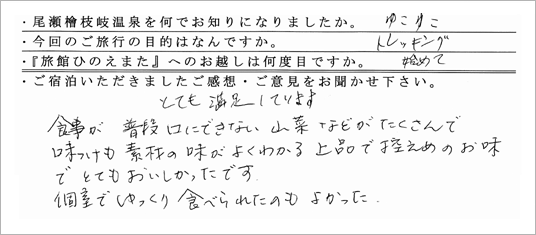 ・尾瀬檜枝岐温泉を何でお知りになりましたか。 ゆこゆこ
・今回のご旅行の目的はなんですか。 トレッキング
・『旅館ひのえまた』へのお越しは何度目ですか。 始めて
・ご宿泊いただきましたご感想・ご意見をお聞かせ下さい。
とても満足しています
食事が普段口にできない山菜などがたくさんで
味つけも素材の味がよくわかる上品で控えめのお味
でとてもおいしかったです
個室でゆっくり食べられたのもよかった.